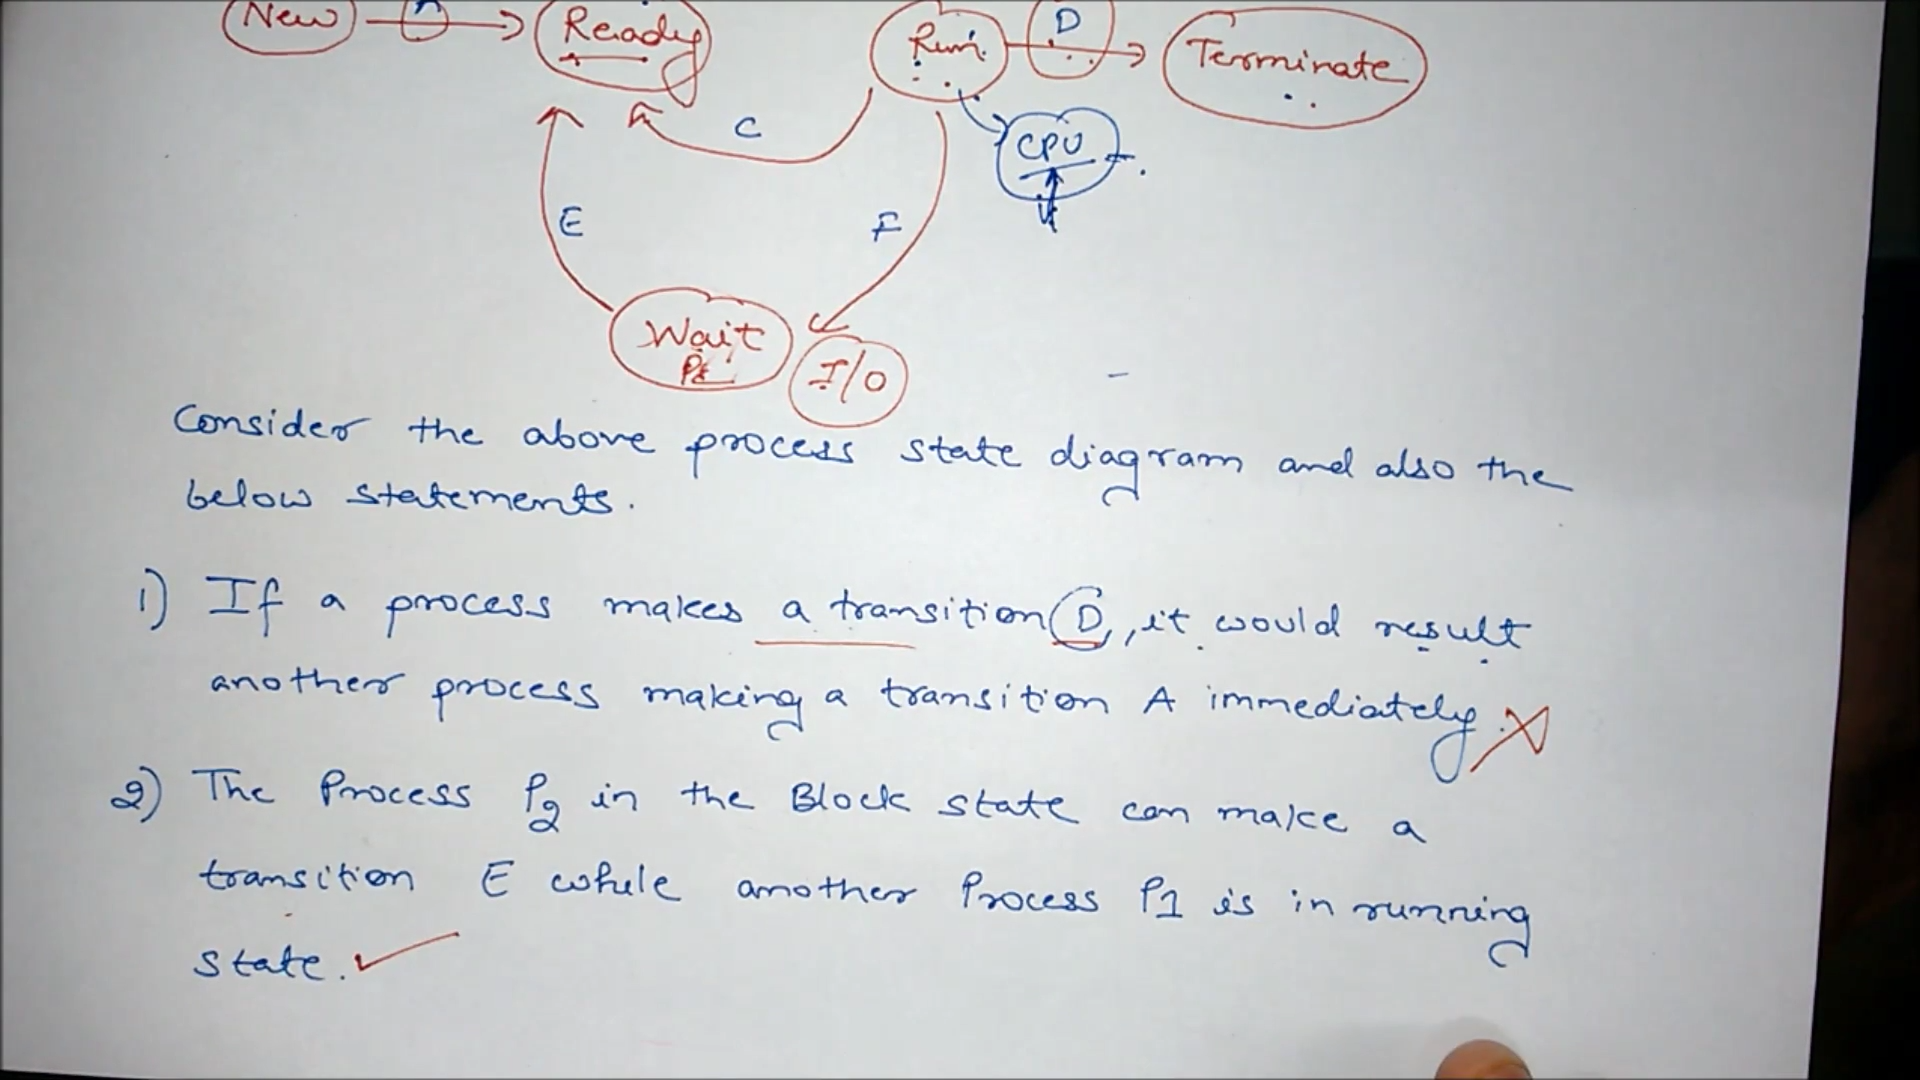 New A Ready Run D Terminate
C
CPU
E F
Wait
I/O
Consider the above process state diagram and also the
below statements.
1) If a process makes a transition D, it would result
another process making a transition A immediately.
2) The Process P2 in the Block state can make a
transition E while another Process P1 is in running
state.